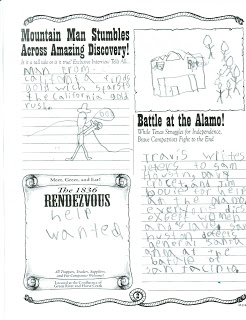 Mountain Man Stumbles
Across Amazing Discovery!
Is it a tall tale or is it true? Exclusive Interview Tells All...
man from
california finds
gold wich starts
the california gold
rush.
Meet, Greet, and Eat!
The 1836
RENDEZVOUS
help
wanted
All Trappers, Traders, Suppliers,
and Fur Companies Welcome!
Located at the Confluence of
Green River and Horse Creek
Battle at the Alamo!
While Texas Struggles for Independence,
Brave Compatriots Fight to the End
Travis writes
leters to sam
houston, davy
crocet, and jim
bowie for help
at the alamo
every one died
exept women
and slaves. sam
huston defeats
general santa
anna at the
battle
san jacinto